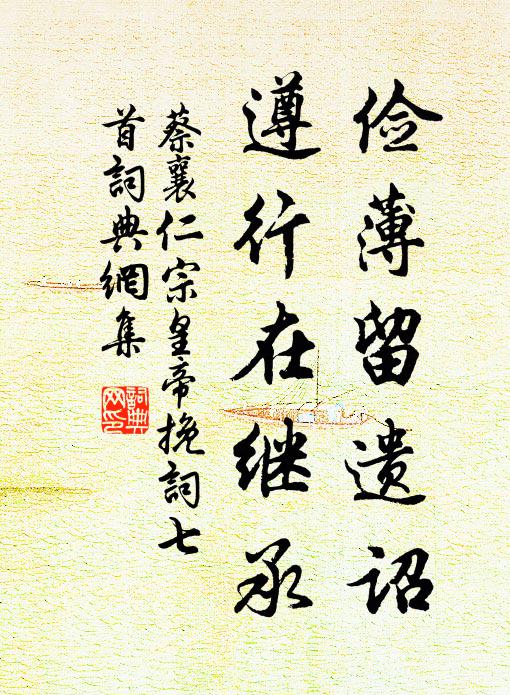 俭薄留遗诏
遵行在继承
蔡襄仁宗皇帝挽詞七
首詞典網集
詞典
网印